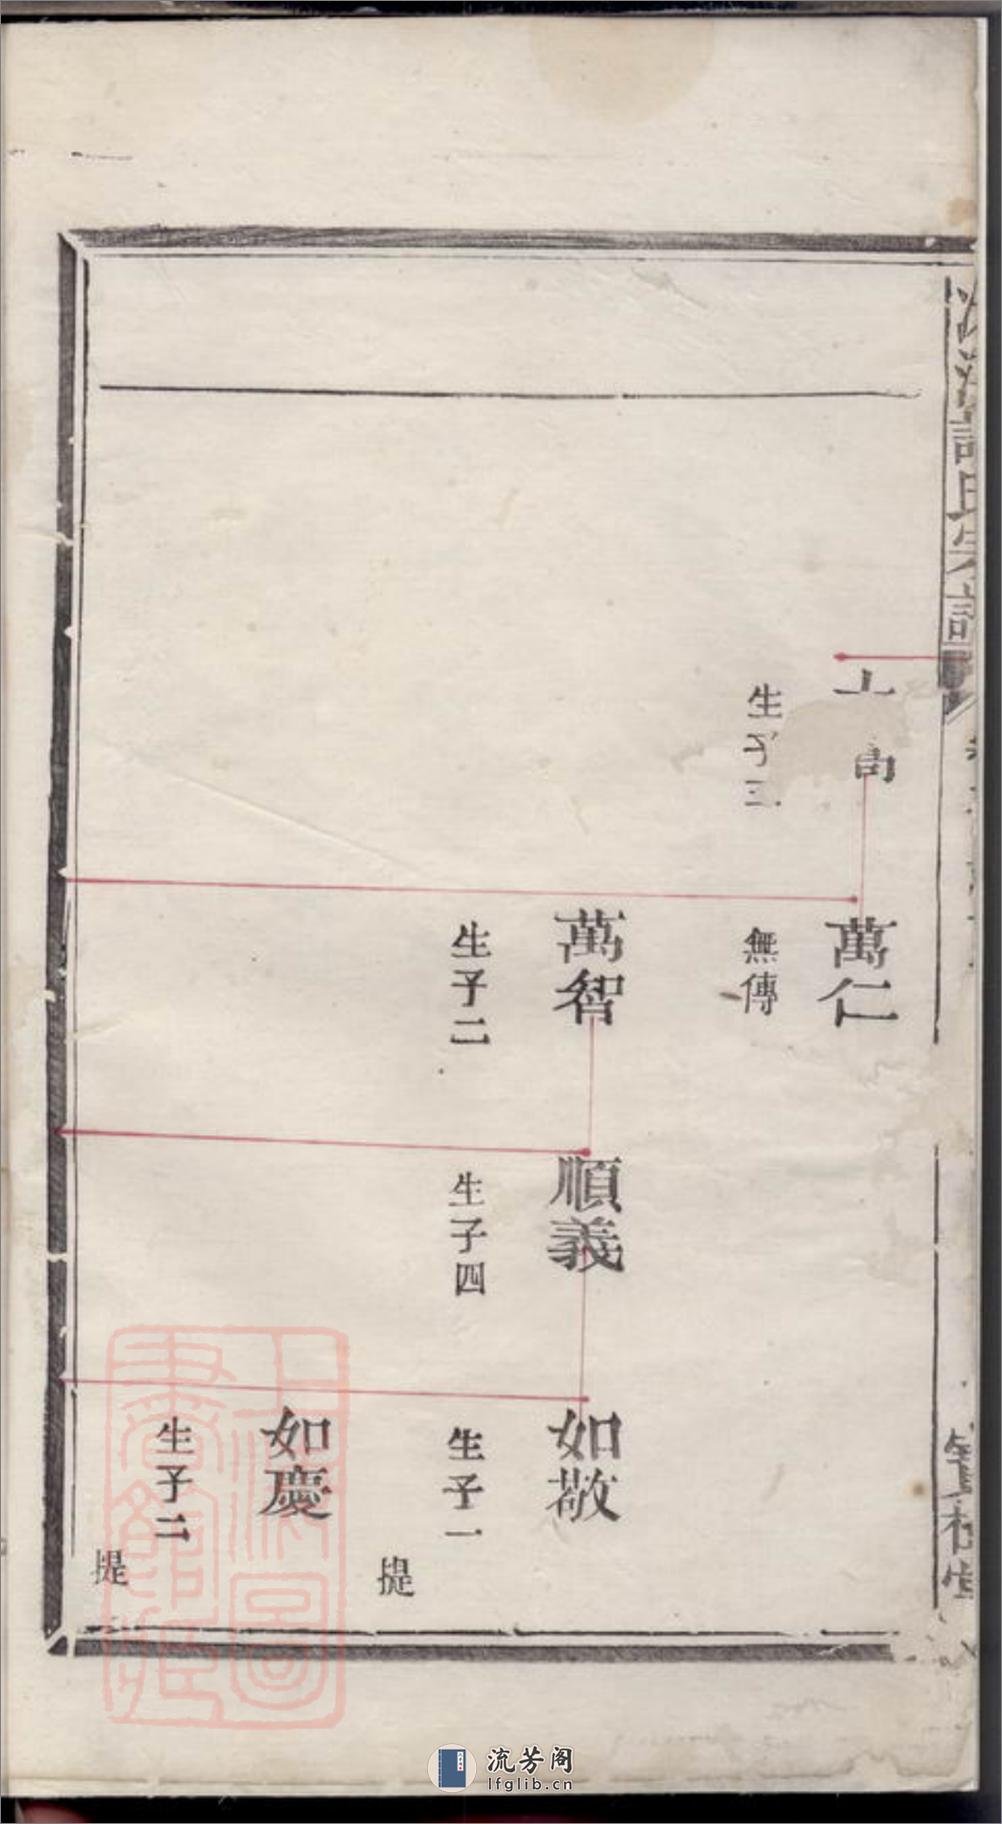 生子三
萬仁
無傳
萬智
生子二
順義
生子四
如敬
生子一
提
如慶
生子二
提
上海圖
書館藏
流芳阁
lfglib.cn